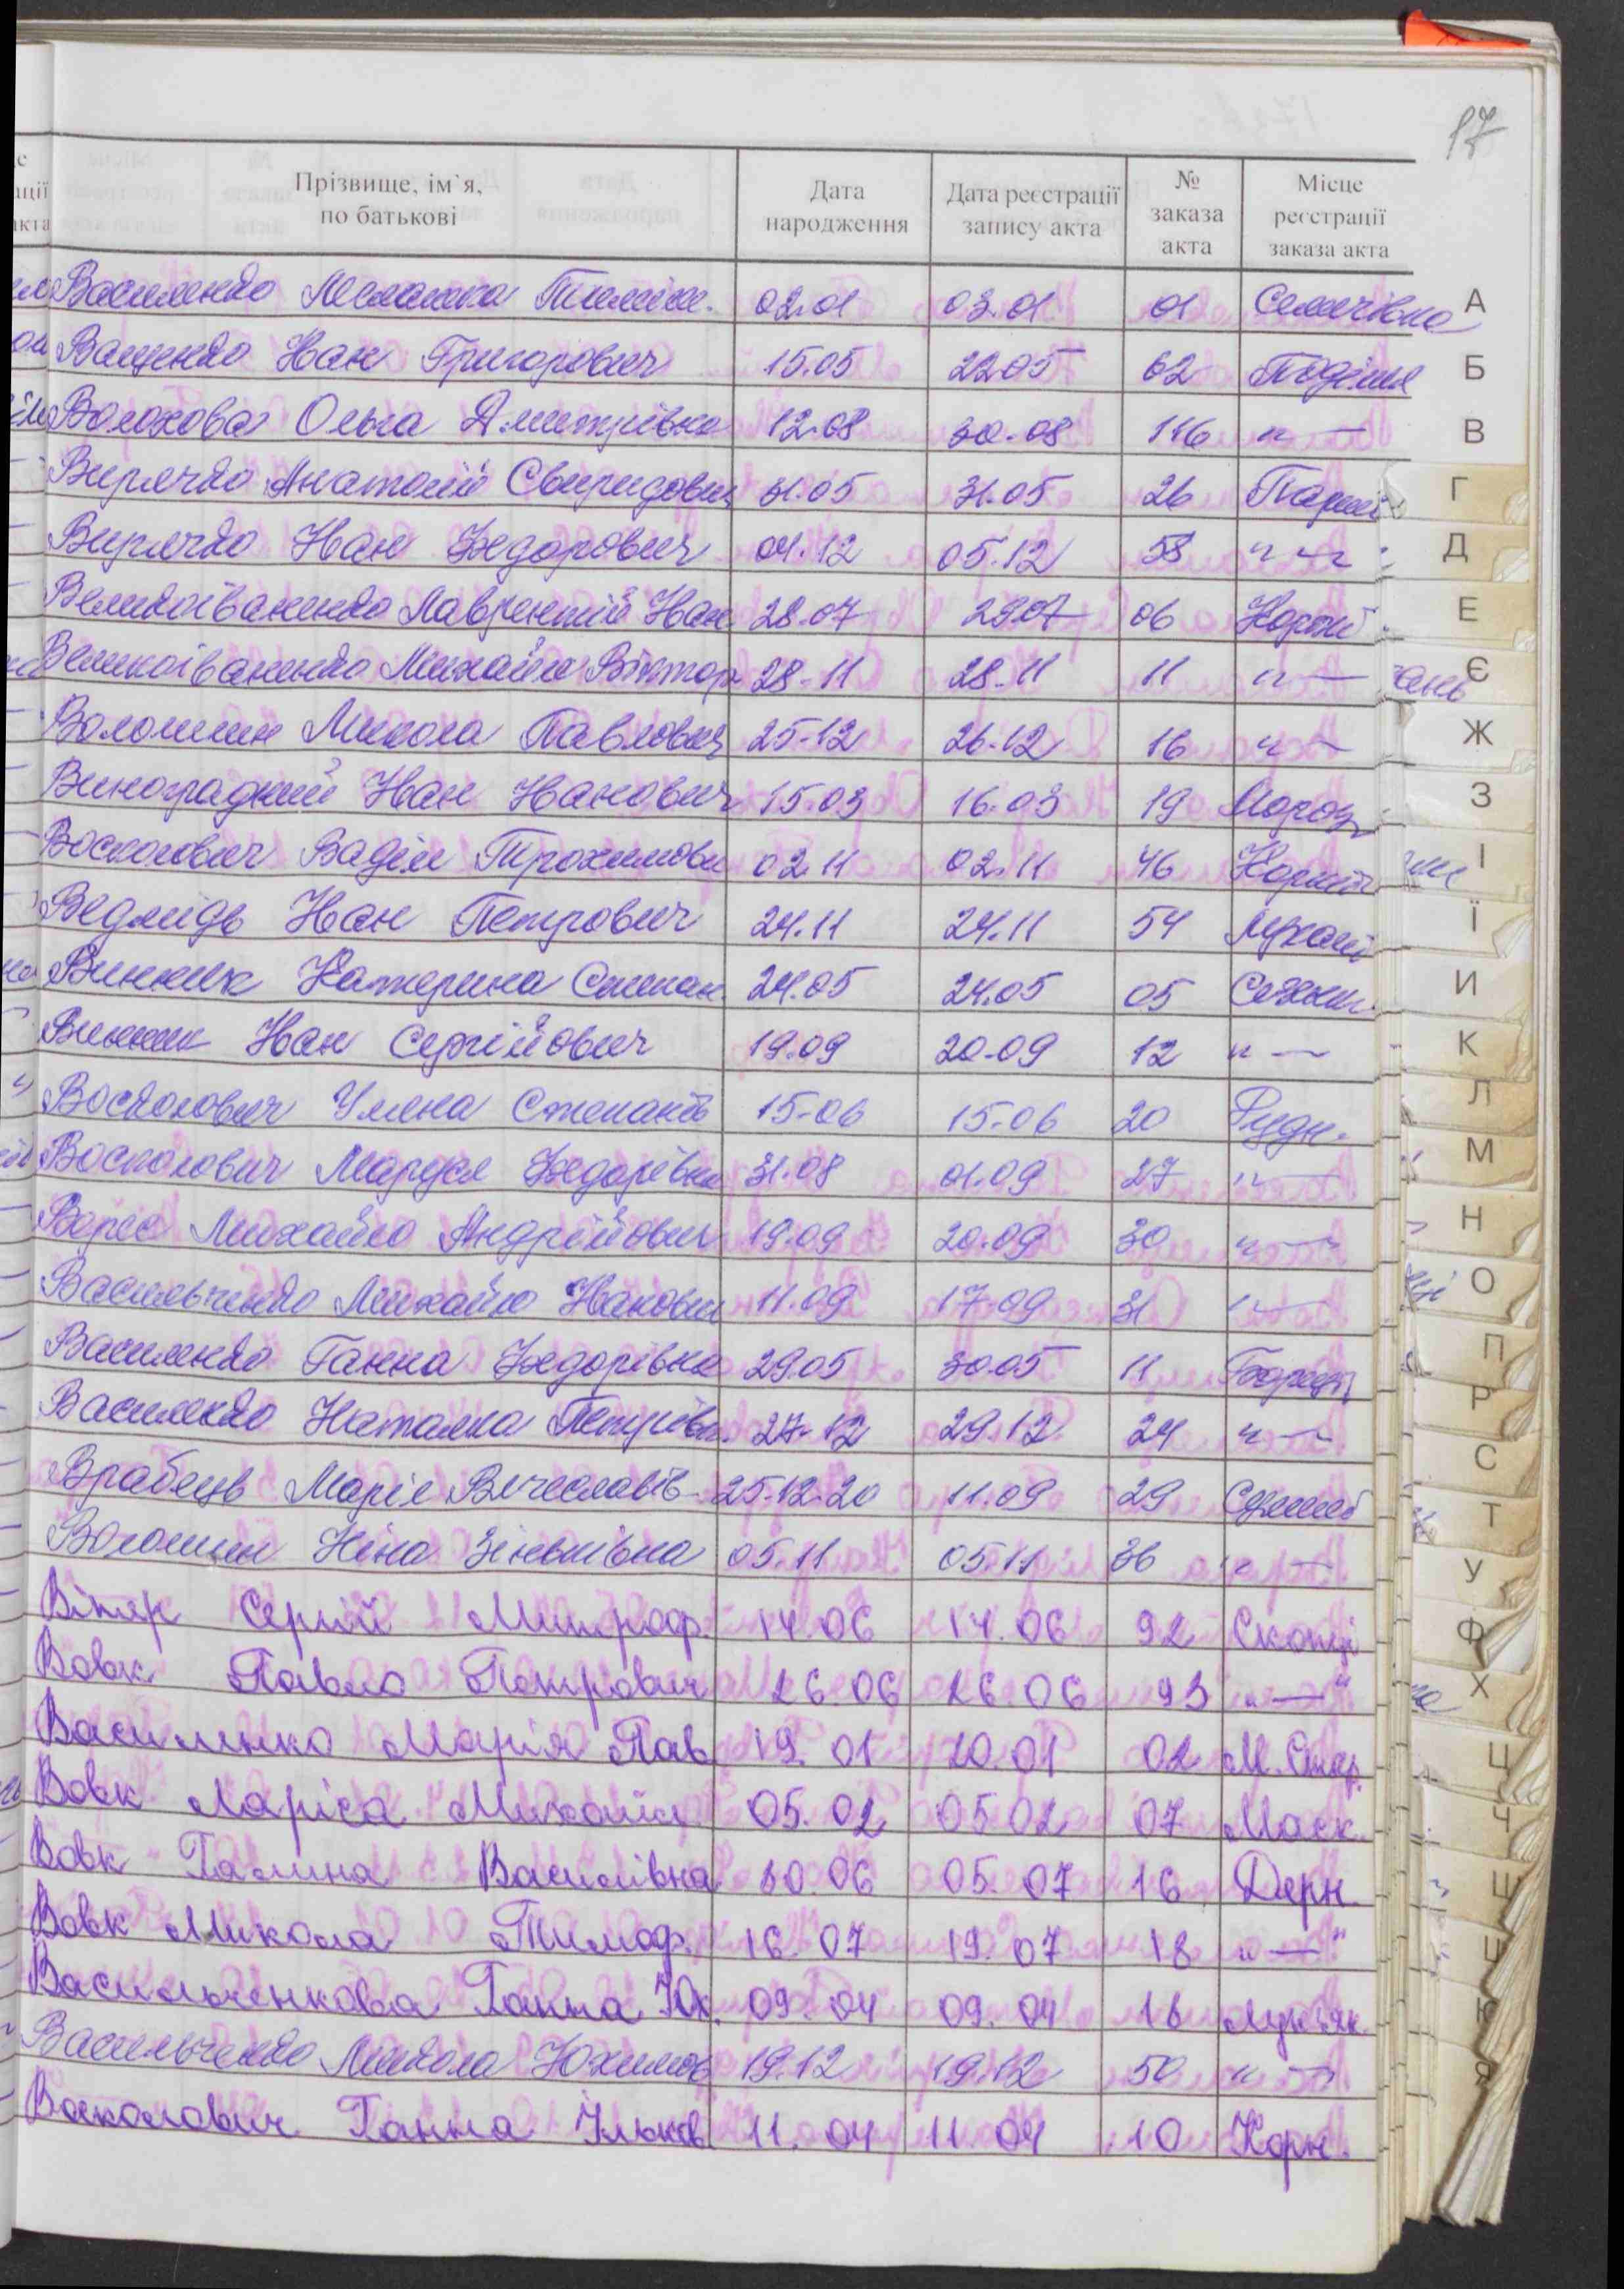 17
Прізвище, ім`я, по батькові Дата народження Дата реєстрації запису акта № заказа акта Місце реєстрації заказа акта
Василенко Меланка 02.01 03.01 01 Семенівка
Ващенко Іван Григорович 15.05 22.05 62 Поділля
Волохова Ольга Дмитрівна 12.08 30.08 116 "—
Вирячко Анатолій Свиридович 31.05 31.05 26
Вирячко Іван Федорович 04.12 05.12 58 "—"
Великоіваненко Лаврентій Іван 28.07 29.07 06
Великоіваненко Михайло Віктор 28.11 28.11 11 "—
Волошин Микола Павлович 25.12 26.12 16 "—
Виноградний Іван Іванович 15.03 16.03 19 Мороз
Восколович Вадім Трохимови 02.11 02.11 46
Ведмидь Іван Петрович 24.11 24.11 54
Винник Катерина Степан. 24.05 24.05 05
Винник Іван Сергійович 19.09 20.09 12 "—
Восколович Уляна Степанів 15.06 15.06 20 Рудн.
Восколович Маруся Федорівна 31.08 01.09 27 "—
Ворес Михайло Андрійович 19.09 20.09 30 "—
Васильченко Михайло Іванови 11.09 17.09 31 "—
Василенко Ганна Федорівна 29.05 30.05 11
Василенко Наталка Петрівн. 27.12 29.12 24 "—
Врабець Марія Вячеславів 25.12.20 11.09 29
Волошин Ніна Зіньківна 05.11 05.11 36 "—
Вітяр Сергій Митроф. 14.06 14.06 92 Скопці
Вовк Павло Петрович 26.06 26.06 93 "—"
Василенко Марія Пав 19.01 20.01 02 М. Стар.
Вовк Ларіса Михайл 05.02 05.02 07 Маск.
Вовк Галина Василівна 30.06 05.07 16 Дерн.
Вовк Микола Тимоф. 16.07 19.07 18 "—"
Васильченкова Ганна Юх. 09.04 09.04 16 Лук'ян.
Васильченко Микола Юхимов 19.12 19.12 50 "—
Восколович Ганна Ільков. 11.04 11.04 10 Корн.
А
Б
В
Г
Д
Е
Є
Ж
З
І
Ї
И
К
Л
М
Н
О
П
Р
С
Т
У
Ф
Х
Ц
Ч
Ш
Щ
Ю
Я